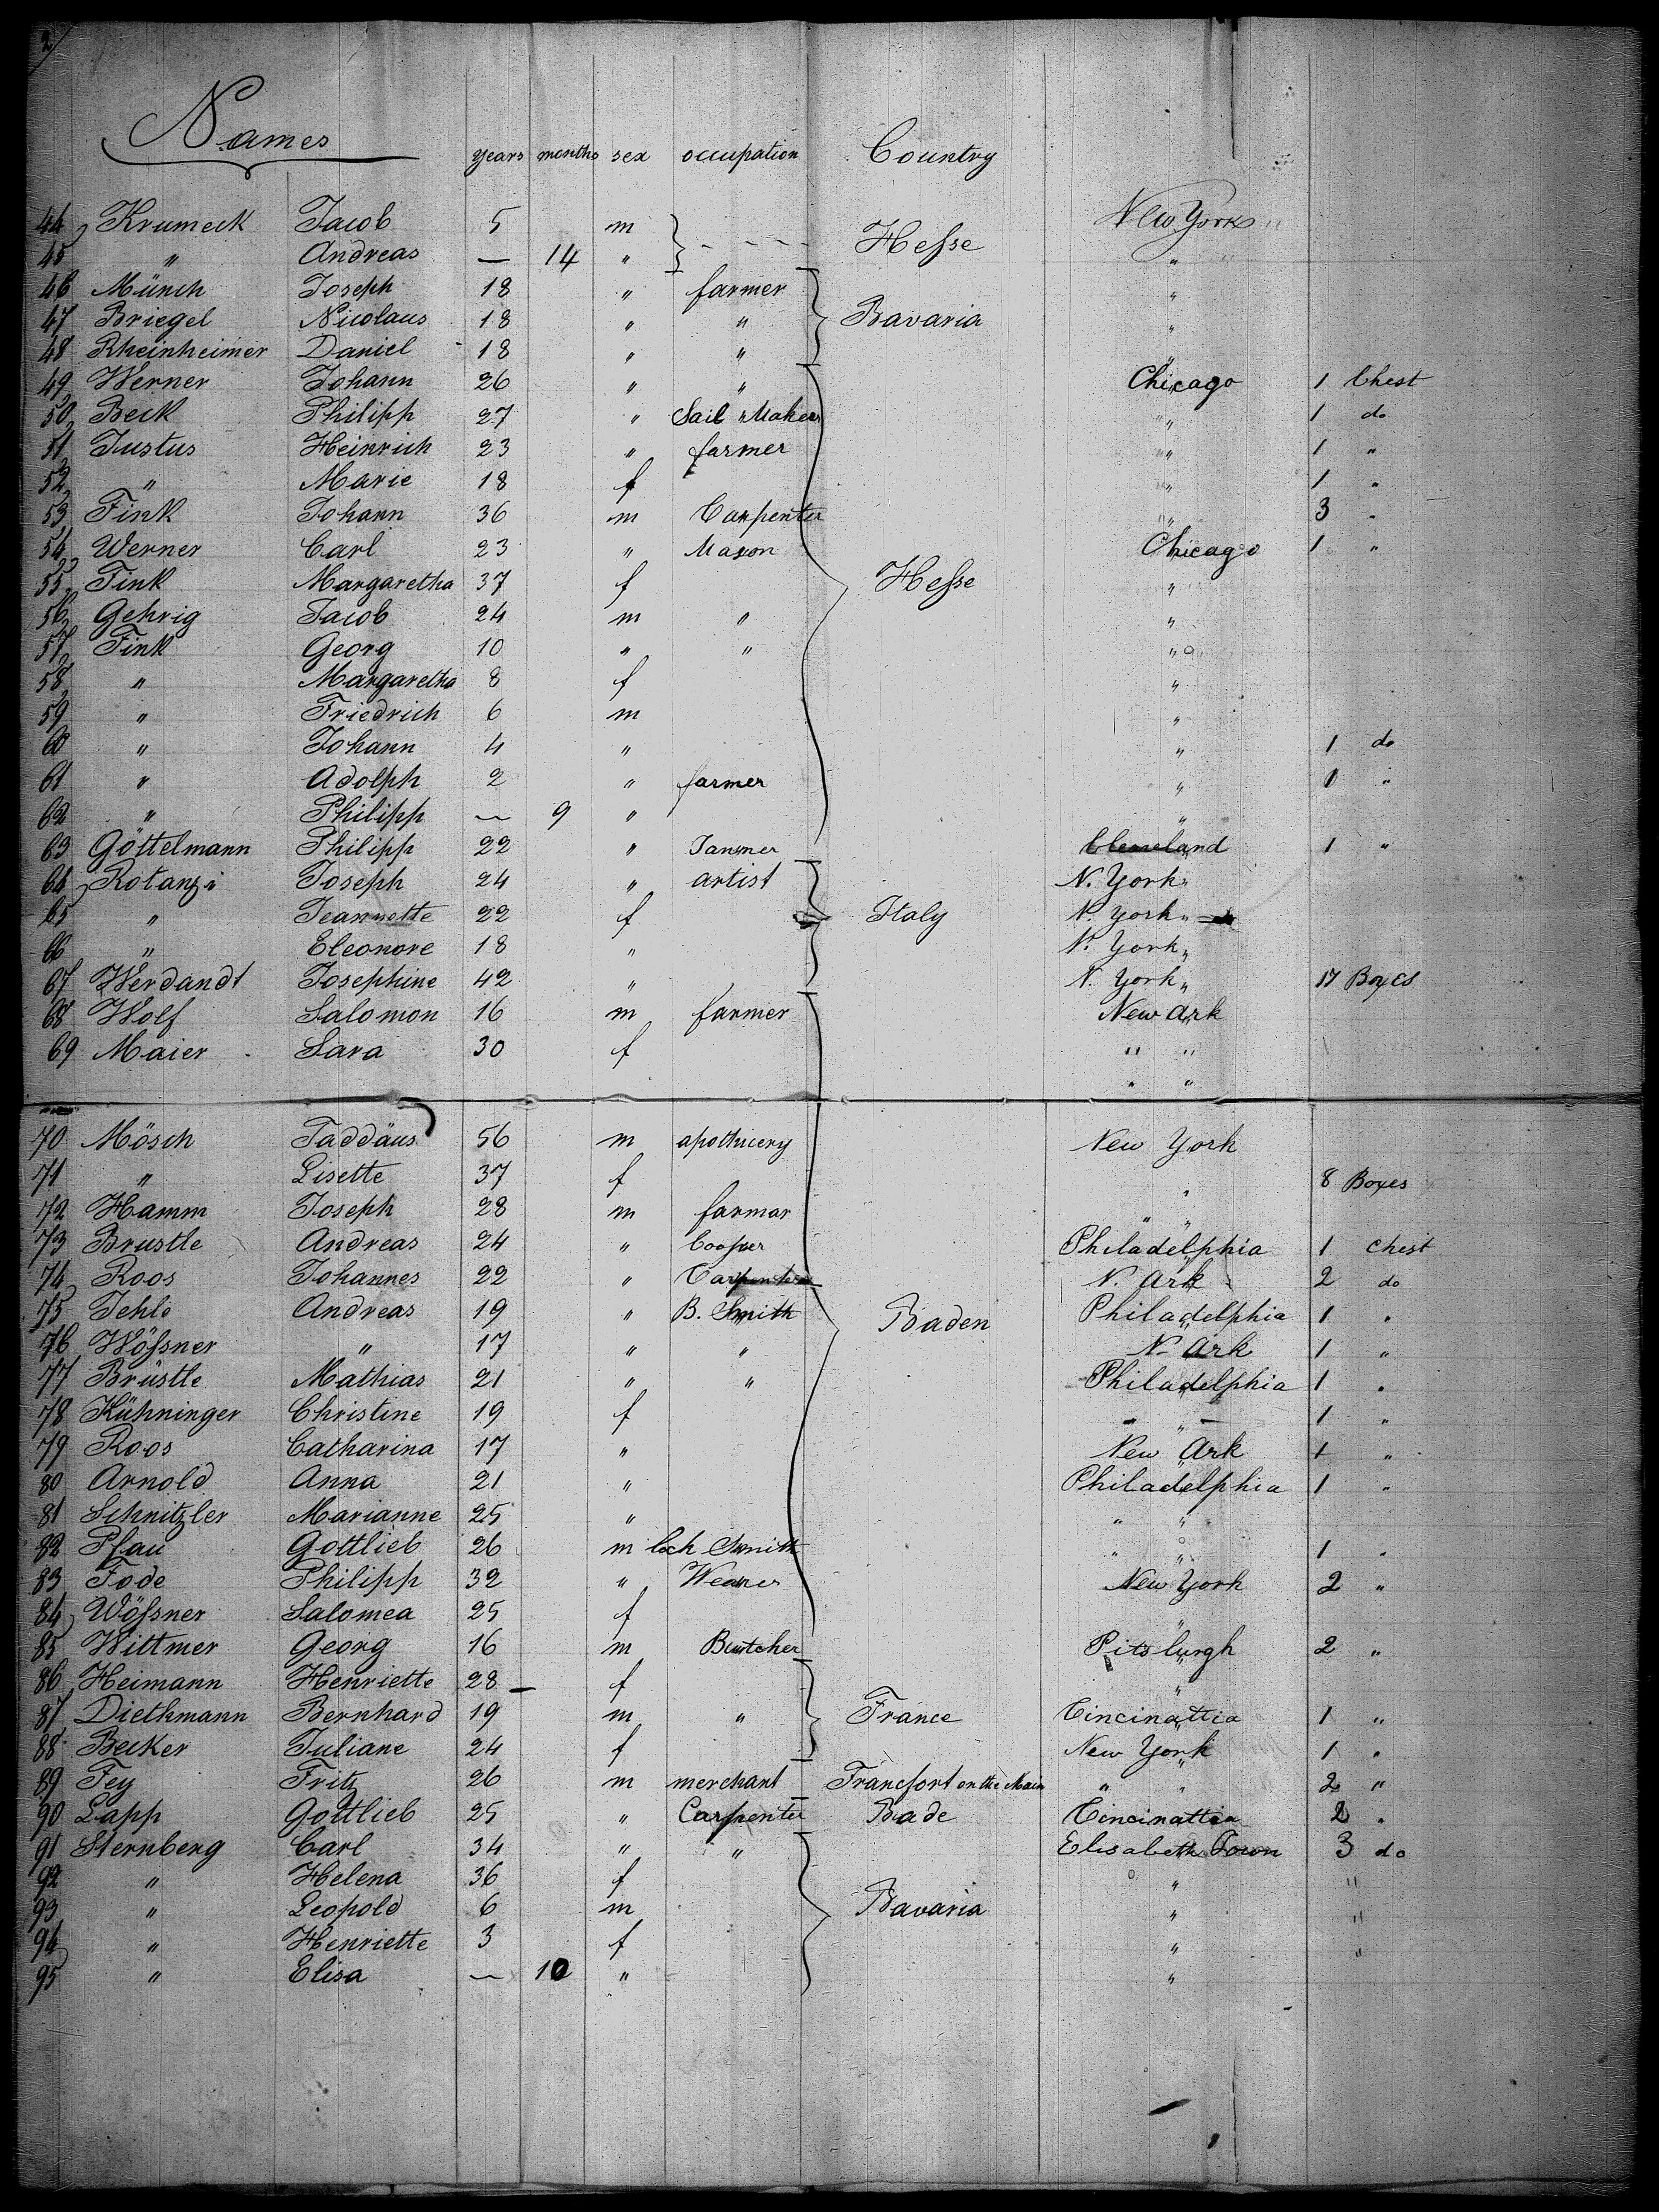 2
Names years months sex occupation Country
44 Krumeck Jacob 5 m - - - - Hesse New York "
45 " Andreas — 14 " "
46 Münch Joseph 18 " farmer "
47 Briegel Nicolaus 18 " " Bavaria "
48 Rheinheimer Daniel 18 " " "
49 Werner Johann 26 " " Chicago 1 Chest
50 Beck Philipp 27 " Sail Maker " 1 do
51 Justus Heinrich 23 " farmer " 1 "
52 " Marie 18 f " 1 "
53 Fink Johann 36 m Carpenter " 3 "
54 Werner Carl 23 " Mason Chicago 1 "
55 Fink Margaretha 37 f Hesse "
56 Gehrig Jacob 24 m " "
57 Fink Georg 10 " " "
58 " Margaretha 8 f "
59 " Friedrich 6 m "
60 " Johann 4 " " 1 do
61 " Adolph 2 " farmer " 1 "
62 " Philipp — 9 " "
63 Göttelmann Philipp 22 " Tanner Cleveland 1 "
64 Rotanzi Joseph 24 " artist N. York "
65 " Jeannette 22 f Italy N. York "
66 " Eleonore 18 " N. York "
67 Werdandt Josephine 42 " N. York " 17 Boxes
68 Wolf Salomon 16 m farmer New Ark
69 Maier Sara 30 f " "
" "
70 Mösch Taddäus 56 m apothicery New York
71 " Lisette 37 f " 8 Boxes
72 Hamm Joseph 28 m farmar " "
73 Brustle Andreas 24 " Cooper Philadelphia 1 Chest
74 Roos Johannes 22 " Carpenter N. Ark 2 do
75 Jehle Andreas 19 " B. Smith Baden Philadelphia 1 "
76 Wößner " 17 " " N. Ark 1 "
77 Brüstle Mathias 21 " " Philadelphia 1 "
78 Kühninger Christine 19 f — " — 1 "
79 Roos Catharina 17 " New Ark 1 "
80 Arnold Anna 21 " Philadelphia 1 "
81 Schnitzler Marianne 25 " " "
82 Pfau Gottlieb 26 m Loch Smith " " 1 "
83 Fode Philipp 32 " Weaver New York 2 "
84 Wößner Salomea 25 f "
85 Wittmer Georg 16 m Butcher Pitsburgh 2 "
86 Heimann Henriette 28 — f "
87 Diethmann Bernhard 19 m " France Cincinattia 1 "
88 Becker Juliane 24 f New York 1 "
89 Fey Fritz 26 m merchant Francfort on the Main " " 2 "
90 Lapp Gottlieb 25 " Carpenter Bade Cincinattia 2 "
91 Sternberg Carl 34 " " Elisabeth Town 3 do
92 " Helena 36 f " "
93 " Leopold 6 m Bavaria " "
94 " Henriette 3 f " "
95 " Elisa — 10 " "